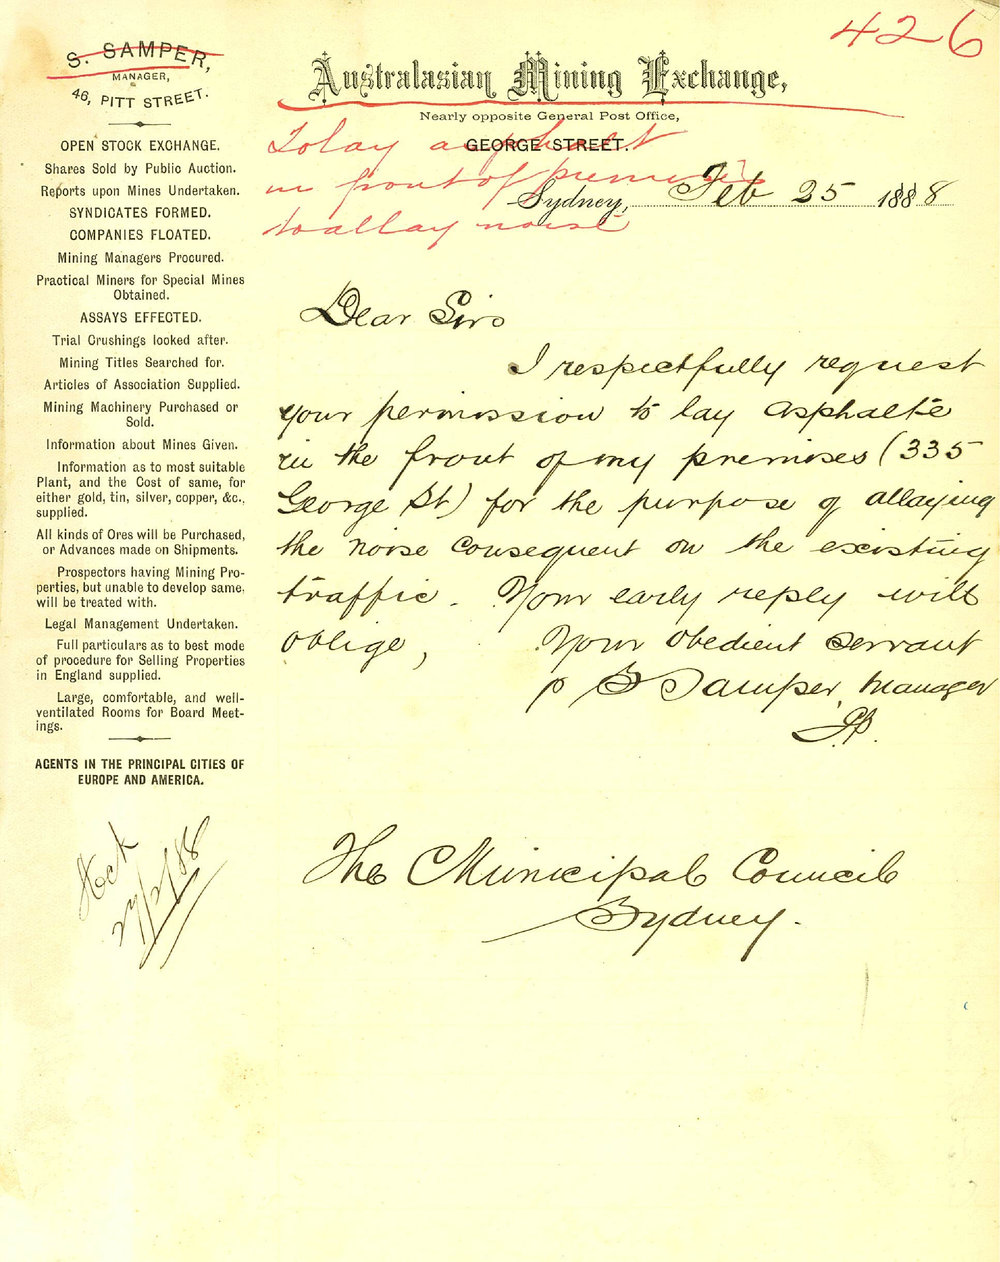 426
S. SAMPER,
MANAGER,
46, PITT STREET.
Australasian Mining Exchange,
Nearly opposite General Post Office,
GEORGE STREET.
To lay asphalt
in front of premises
to allay noise
Sydney, Feb 25 1888
OPEN STOCK EXCHANGE.
Shares Sold by Public Auction.
Reports upon Mines Undertaken.
SYNDICATES FORMED.
COMPANIES FLOATED.
Mining Managers Procured.
Practical Miners for Special Mines
Obtained.
ASSAYS EFFECTED.
Trial Crushings looked after.
Mining Titles Searched for.
Articles of Association Supplied.
Mining Machinery Purchased or
Sold.
Information about Mines Given.
Information as to most suitable
Plant, and the Cost of same, for
either gold, tin, silver, copper, &c.,
supplied.
All kinds of Ores will be Purchased,
or Advances made on Shipments.
Prospectors having Mining Pro-
perties, but unable to develop same,
will be treated with.
Legal Management Undertaken.
Full particulars as to best mode
of procedure for Selling Properties
in England supplied.
Large, comfortable, and well-
ventilated Rooms for Board Meet-
ings.
AGENTS IN THE PRINCIPAL CITIES OF
EUROPE AND AMERICA.
Dear Sirs
I respectfully request
your permission to lay asphalte
in the front of my premises (335
George St) for the purpose of allaying
the noise consequent on the existing
traffic. Your early reply will
oblige,
Your obedient servant
p S Samper, Manager
J.P.
The Municipal Council
Sydney.
27/2/88